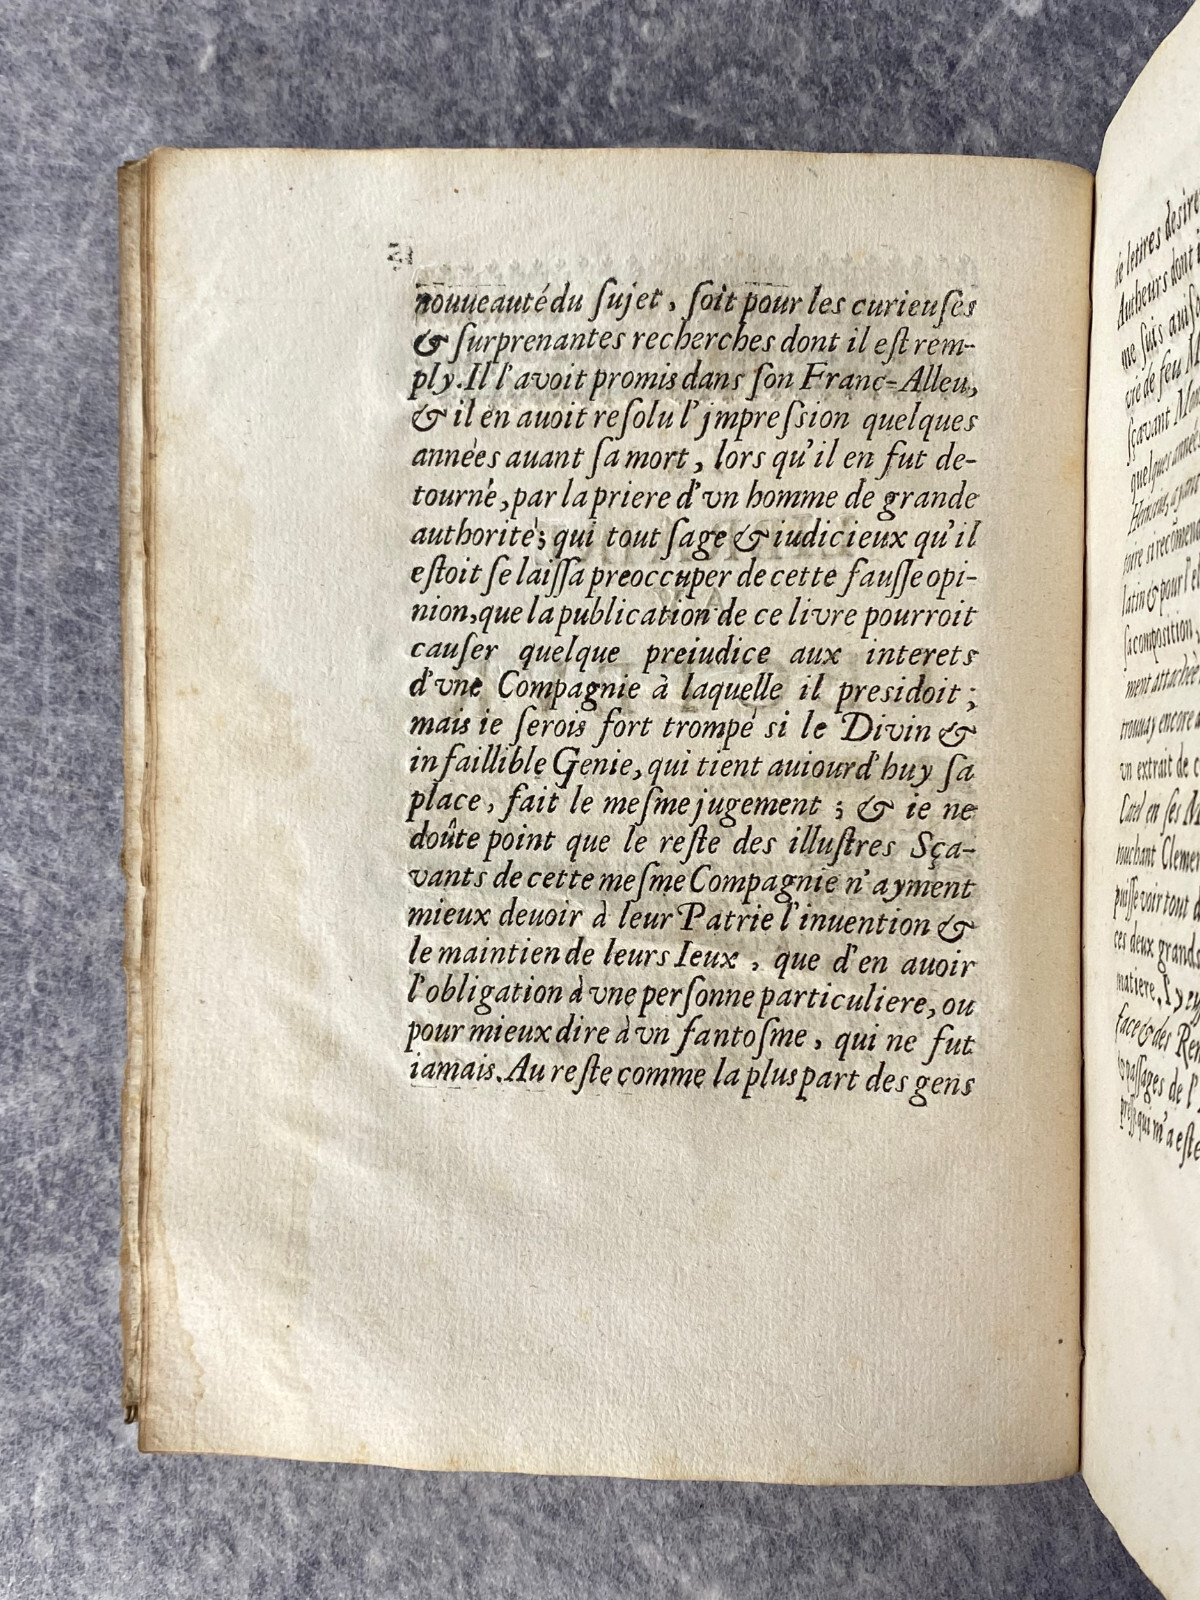 nouueauté du ſujet, ſoit pour les curieuſes
& ſurprenantes recherches dont il eſt rem-
ply. Il l'avoit promis dans ſon Franc-Alleu,
& il en auoit reſolu l'jmpreſſion quelques
années auant ſa mort, lors qu'il en fut de-
tourné, par la priere d'vn homme de grande
authorité; qui tout ſage & iudicieux qu'il
eſtoit ſe laiſſa preoccuper de cette fauſſe opi-
nion, que la publication de ce livre pourroit
cauſer quelque preiudice aux interets
d'vne Compagnie à laquelle il presidoit;
mais ie ſerois fort trompé si le Divin &
infaillible Genie, qui tient auiourd'huy ſa
place, fait le meſme jugement; & ie ne
doûte point que le reſte des illuſtres Sça-
vants de cette meſme Compagnie n'ayment
mieux deuoir à leur Patrie l'inuention &
le maintien de leurs Ieux, que d'en auoir
l'obligation à vne perſonne particuliere, ou
pour mieux dire à vn fantoſme, qui ne fut
iamais. Au reſte comme la pluspart des gens
de lettres desire
Autheurs dont i
me ſuis auiſ
vre de feu M
ſçavant
quelques années
latin & pour l'e
ſa composition,
ment attachée
trouuay encore
vn extrait de c
Catel en ſes M
touchant Clemen
puiſſe voir tout
ces deux grands
matiere, I'y ey
face & des Re
paſſages de l'
qui m'a eſté